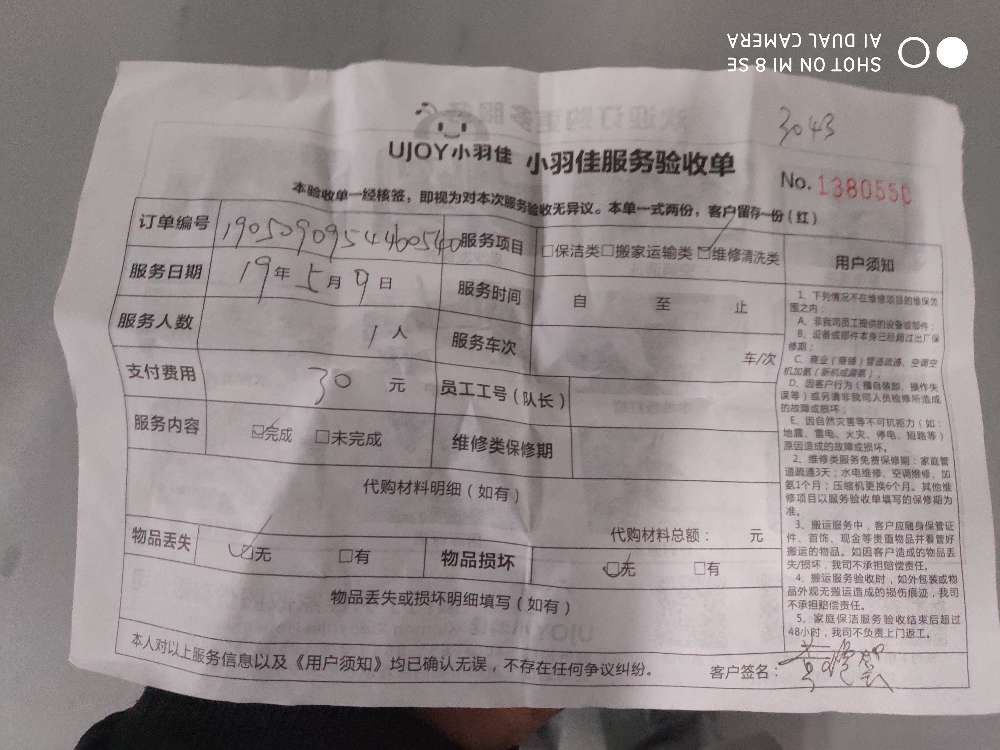 SHOT ON MI 8 SE
AI DUAL CAMERA
3043
UJOY小羽佳 小羽佳服务验收单
No. 1380550
本验收单一经核签，即视为对本次服务验收无异议。本单一式两份，客户留存一份（红）
订单编号 服务项目 保洁类 搬家运输类 维修清洗类
服务日期 19年5月9日 服务时间 自 至 止
服务人数 1人 服务车次 车/次
支付费用 30 元 员工工号（队长）
服务内容 完成 未完成 维修类保修期
代购材料明细（如有）
代购材料总额： 元
物品丢失 无 有 物品损坏 无 有
物品丢失或损坏明细填写（如有）
本人对以上服务信息以及《用户须知》均已确认无误，不存在任何争议纠纷。
客户签名：
用户须知
1、下列情况不在维修项目的维保范
围之内：
A、非我司员工提供的设备或部件；
B、设备或部件本身已经超过出厂保
修期；
C、商业（商铺）管道疏通、空调空
机加氨（新机或漏氨）；
D、因客户行为（擅自装卸、操作失
误等）或另请非我司人员检修所造成
的故障或损坏；
E、因自然灾害等不可抗拒力（如：
地震、雷电、火灾、停电、短路等）
原因造成的故障或损坏。
2、维修类服务免费保修期：家庭管
道疏通3天；水电维修、空调维修、加
氨1个月；压缩机更换6个月。其他维
修项目以服务验收单填写的保修期为
准。
3、搬运服务中，客户应随身保管证
件、首饰、现金等贵重物品并看管好
搬运的物品。如因客户造成的物品丢
失/损坏，我司不承担赔偿责任。
4、搬运服务验收时，如外包装或物
品外观无搬运造成的损伤痕迹，我司
不承担赔偿责任。
5、家庭保洁服务验收结束后超过
48小时，我司不负责上门返工。